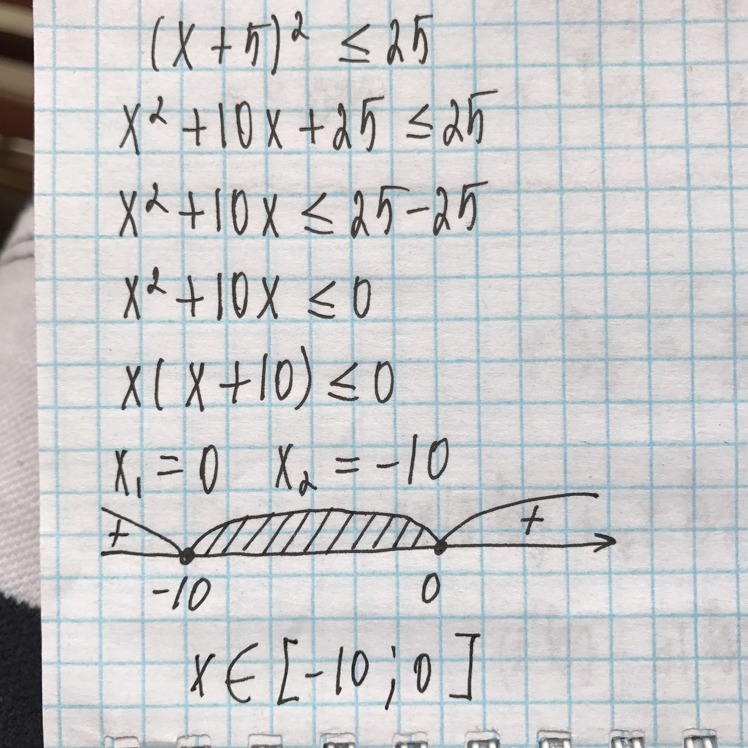 (x+5)² ≤ 25
x² + 10x + 25 ≤ 25
x² + 10x ≤ 25 - 25
x² + 10x ≤ 0
x(x+10) ≤ 0
x₁ = 0 x₂ = -10
+ +
-10 0
x ∈ [-10; 0]